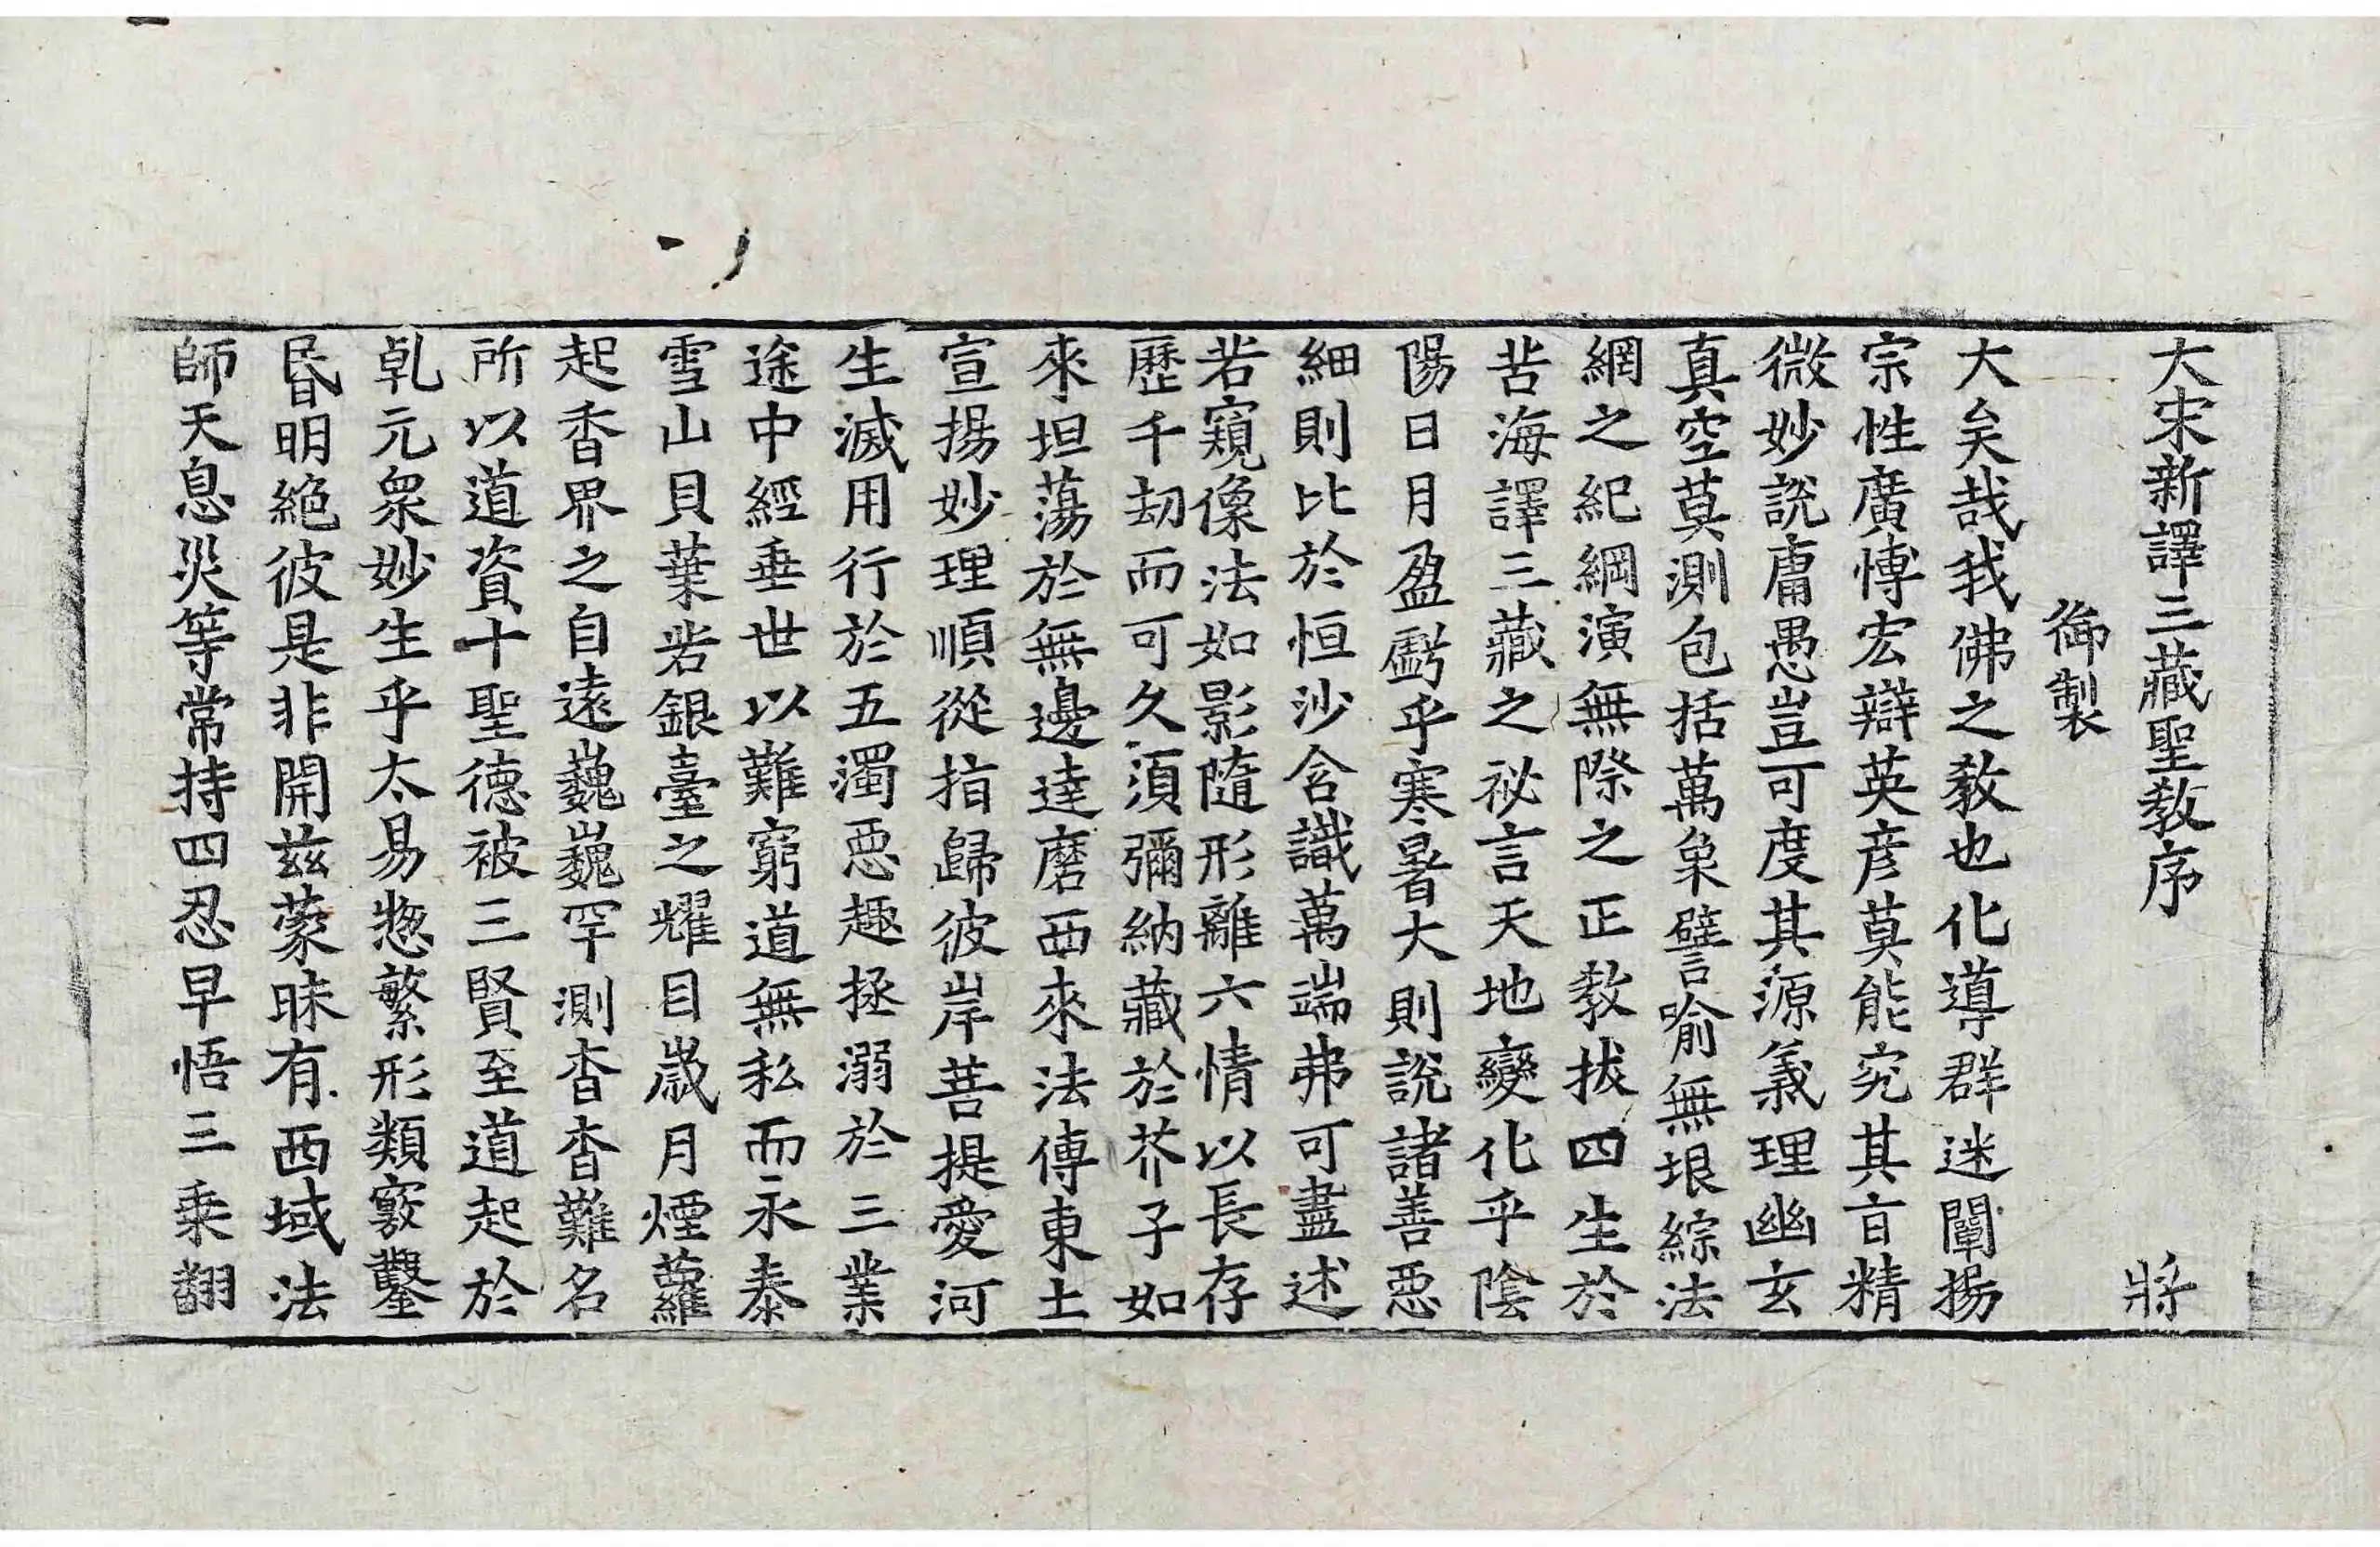 大宋新譯三藏聖教序　將
御製
大矣哉我佛之教也化導群迷闡揚
宗性廣愽宏辯英彦莫能究其㫖精
微妙説庸愚豈可度其源義理幽玄
真空莫測包括萬象譬喻無垠綜法
網之紀綱演無際之正教拔四生於
苦海譯三藏之祕言天地變化乎陰
陽日月盈虧乎寒暑大則説諸善惡
細則比於恒沙含識萬端弗可盡述
若窺像法如影隨形離六情以長存
歷千劫而可久須彌納藏於芥子如
來坦蕩於無邊達磨西來法傳東土
宣揚妙理順從指歸彼岸菩提愛河
生滅用行於五濁惡趣拯溺於三業
途中經垂世以難窮道無私而永泰
雪山貝葉若銀臺之耀目歲月煙蘿
起香界之自遠巍巍罕測杳杳難名
所以道資十聖德被三賢至道起於
乹元衆妙生乎太易惣繁形類竅鑿
昬明絶彼是非開兹蒙昧有西域法
師天息災等常持四忍早悟三乗翻